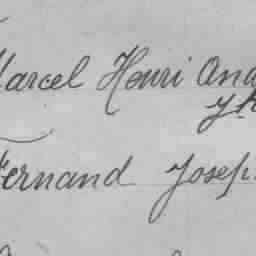 Marcel Henri And
Fernand Joseph